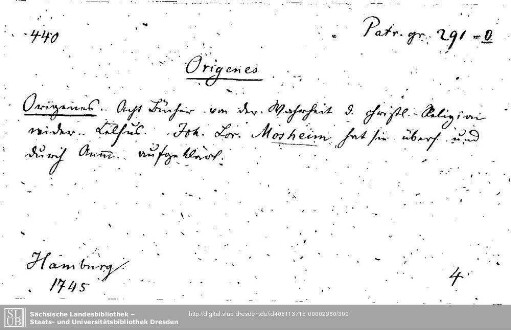 440
Patr. gr. 291 = 0
Origenes
Origenes. Acht Bücher von der Wahrheit d. christl. Religion
wider Celsus. Joh. Lor. Mosheim hat sie übers. und
durch Anm. aufgeklärt.
Hamburg
1745
4
Sächsische Landesbibliothek –
Staats- und Universitätsbibliothek Dresden